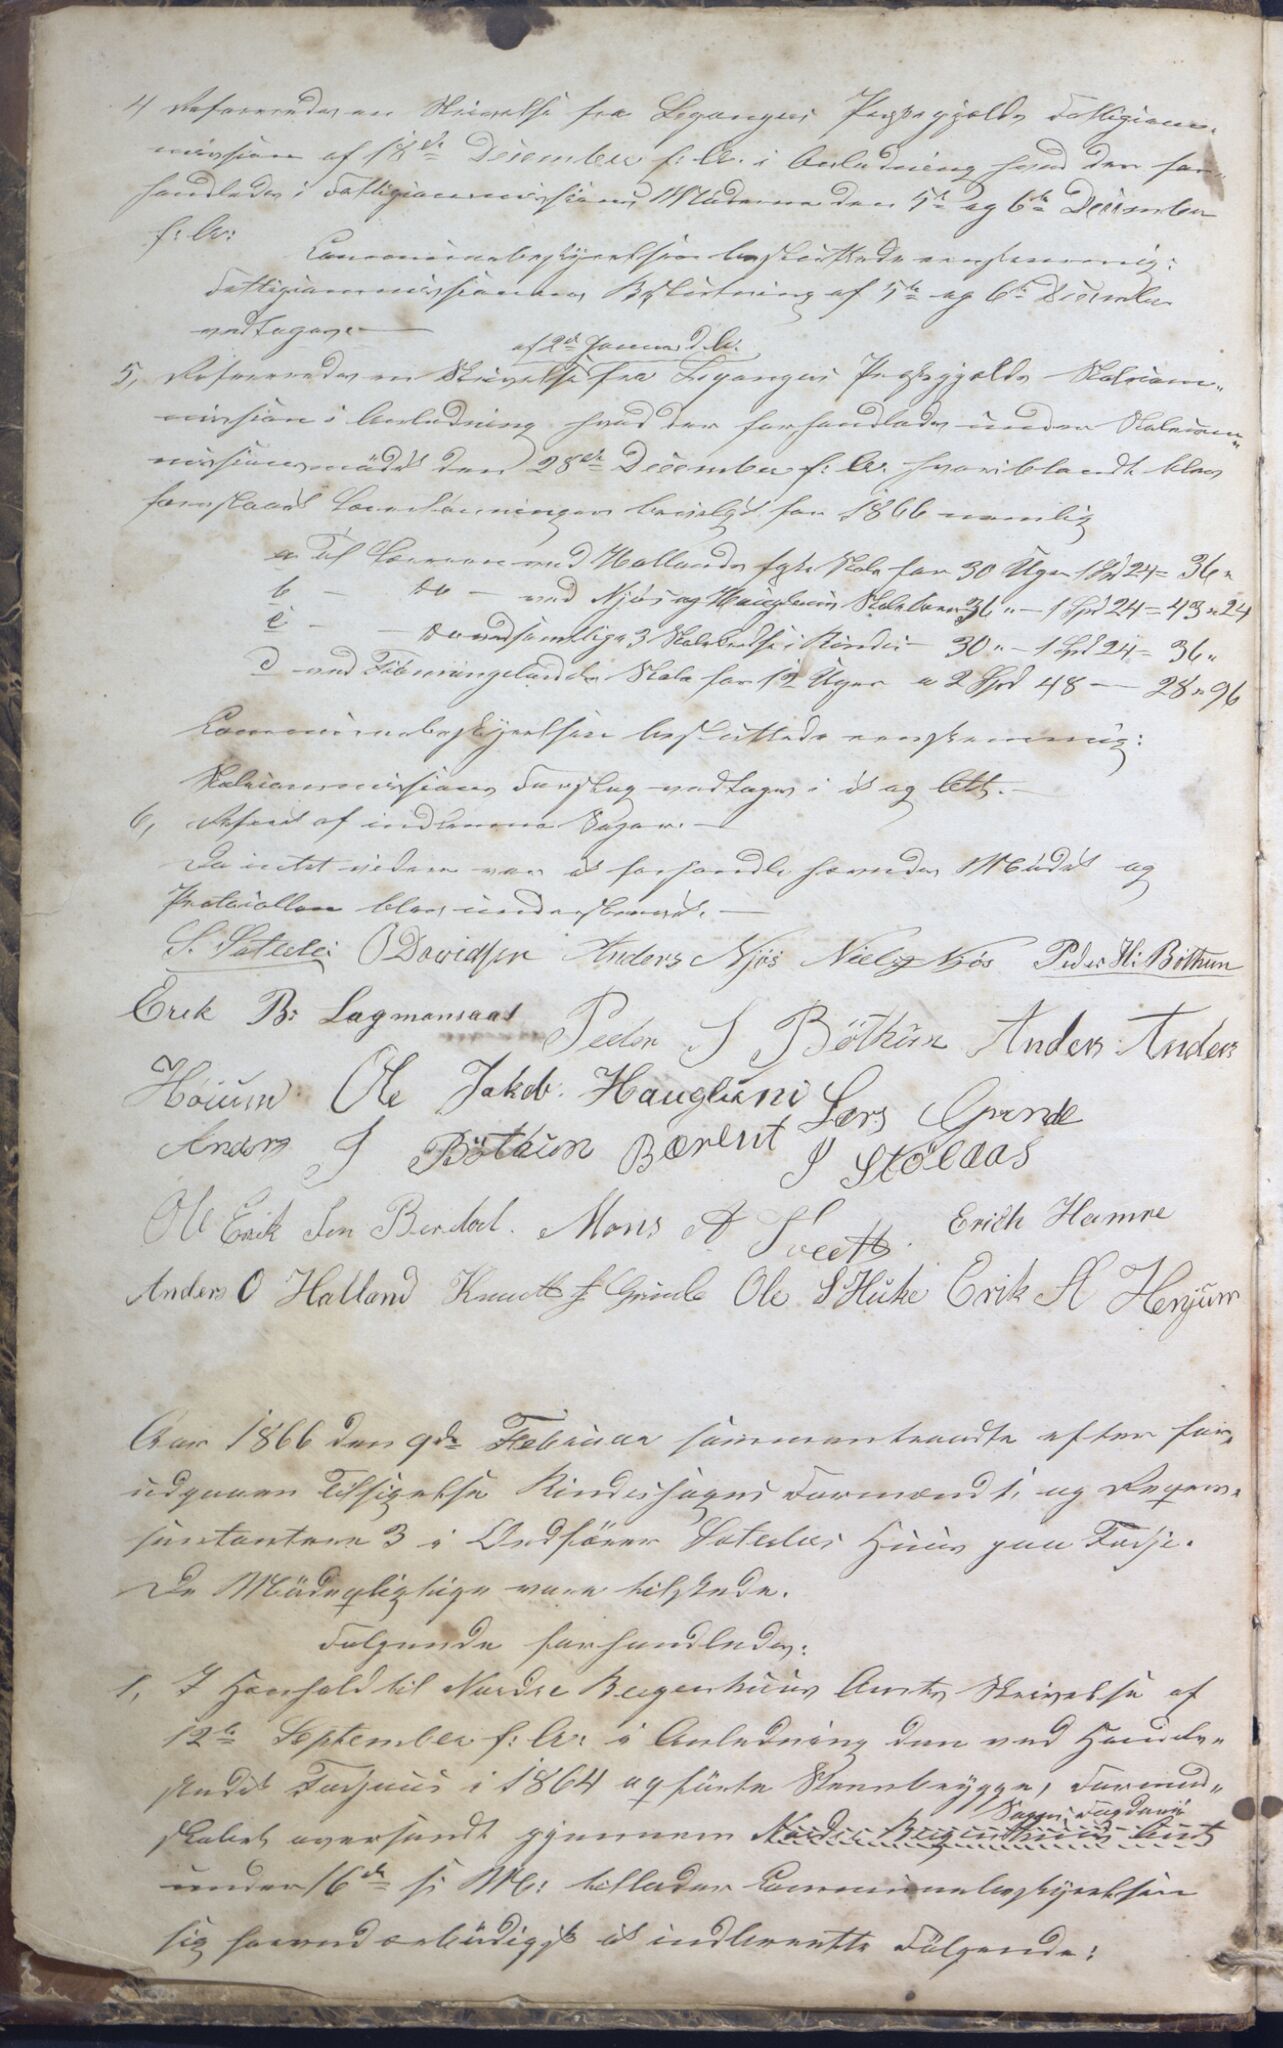 4, Refereredes en Skrivelse fra Leganger Præstegjelds Fattigcom-
mission af 18de December f: A: i Anledning hvad der for-
handledes i Fattigcommissions Møderne den 5te og 6te December
f: A:
Communebestyrelsen besluttede eenstemmig:
Fattigcommissionens Beslutning af 5te og 6te December
vedtages. —
af 2den Januar d. A.
5, Refereredes en Skrivelse fra Leganger Præstegjelds Skolecom-
mission i Anledning hvad der forhandledes under Skolecom-
missionsmødet den 28de December f: A: hvoriblandt blev
foreslaaet Lønninger bevilget for 1866 nemlig
a Til Læreren ved Hallands faste Skole for 30 Uger 1 Spd 24 = 36 "
b — Do — ved Njøs og Hauglums Skolekreds 36 " — 1 Spd 24 = 43 " 24
c — — Do ved samtlige 3 Skolekredse i Rinde — 30 " — 1 Spd 24 = 36 "
d ved Skole for 12 Uger a 2 Spd 48 — 28 " 96
Communebestyrelsen besluttede eenstemmig:
Skolecommissions Forslag vedtages i et og Alt. —
6, Referat af indkomne Sager. —
Da intet videre var at forhandle hævedes Mødet og
Protocollen blev underskrevet. —
S. Sateløi O Davidsen Anders Njøs Niels Njøs Peder H: Böthun
Erik B: Lagmansaas Peder J Böthün Anders Anders
Høium Ole Jakob. Hauglum Lars Grinde
Anders J Böthün Bærent J Stölaas
Ole Erik Sen Berdal. Mons A Tveeth. Erich Hamre
Anders O Halland Knudt J Grinde Ole S Huke Erik A Henjum
Aar 1866 den 9de Februar sammentraadte efter for-
udgaaen Tilsigelse Rindesogns Formænd, og Repræ-
sentantere 3 i Ordfører Sateløis Huus paa Færje.
De Mødepligtige vare tilstede.
Følgende forhandledes:
1, I Henhold til Nordre Bergenhuus Amts Skrivelse af
12te September f: A: i Anledning den ved
i 1864 opførte Steenbrygge, Formand-
Sogns Fogderi
skabet oversendt gjennem Nordre Bergenhuus Amt
under 16de s: M: tillader Communebestyrelsen
sig herved ærbødigst at indberette Følgende: